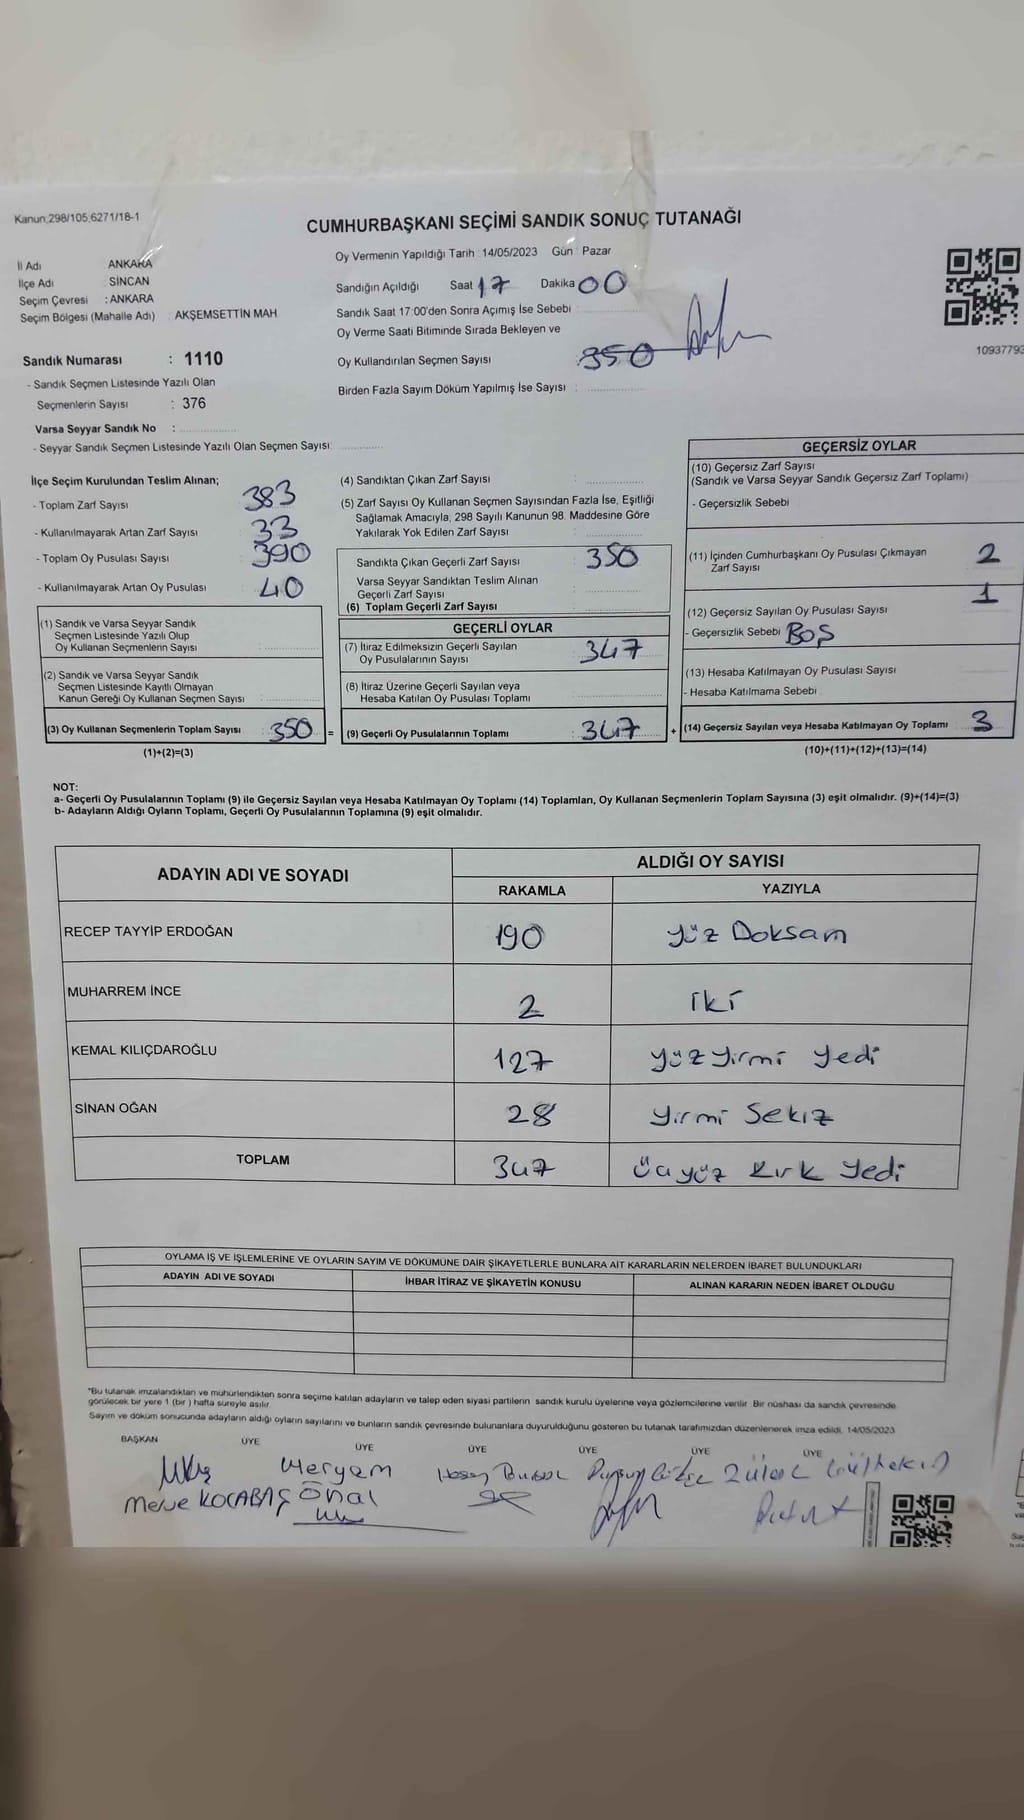 Kanun;298/105;6271/18-1
CUMHURBAŞKANI SEÇİMİ SANDIK SONUÇ TUTANAĞI
İl Adı ANKARA
İlçe Adı : SİNCAN
Seçim Çevresi : ANKARA
Seçim Bölgesi (Mahalle Adı) : AKŞEMSETTİN MAH
Sandık Numarası : 1110
- Sandık Seçmen Listesinde Yazılı Olan
Seçmenlerin Sayısı : 376
Varsa Seyyar Sandık No :
- Seyyar Sandık Seçmen Listesinde Yazılı Olan Seçmen Sayısı:
Oy Vermenin Yapıldığı Tarih : 14/05/2023 Gün : Pazar
Sandığın Açıldığı Saat 17 Dakika 00
Sandık Saat 17:00'den Sonra Açımış İse Sebebi :
Oy Verme Saati Bitiminde Sırada Bekleyen ve
Oy Kullandırılan Seçmen Sayısı : 350
Birden Fazla Sayım Döküm Yapılmış İse Sayısı :
10937793
İlçe Seçim Kurulundan Teslim Alınan;
- Toplam Zarf Sayısı 383
- Kullanılmayarak Artan Zarf Sayısı 33
- Toplam Oy Pusulası Sayısı 390
- Kullanılmayarak Artan Oy Pusulası 40
(1) Sandık ve Varsa Seyyar Sandık
Seçmen Listesinde Yazılı Olup
Oy Kullanan Seçmenlerin Sayısı
(2) Sandık ve Varsa Seyyar Sandık
Seçmen Listesinde Kayıtlı Olmayan
Kanun Gereği Oy Kullanan Seçmen Sayısı
(3) Oy Kullanan Seçmenlerin Toplam Sayısı : 350 =
(1)+(2)=(3)
(4) Sandıktan Çıkan Zarf Sayısı :
(5) Zarf Sayısı Oy Kullanan Seçmen Sayısından Fazla İse, Eşitliği
Sağlamak Amacıyla, 298 Sayılı Kanunun 98. Maddesine Göre
Yakılarak Yok Edilen Zarf Sayısı :
Sandıkta Çıkan Geçerli Zarf Sayısı : 350
Varsa Seyyar Sandıktan Teslim Alınan
Geçerli Zarf Sayısı
(6) Toplam Geçerli Zarf Sayısı
GEÇERLİ OYLAR
(7) İtiraz Edilmeksizin Geçerli Sayılan
Oy Pusulalarının Sayısı : 347
(8) İtiraz Üzerine Geçerli Sayılan veya
Hesaba Katılan Oy Pusulası Toplamı
(9) Geçerli Oy Pusulalarının Toplamı : 347 +
GEÇERSİZ OYLAR
(10) Geçersiz Zarf Sayısı
(Sandık ve Varsa Seyyar Sandık Geçersiz Zarf Toplamı)
- Geçersizlik Sebebi
(11) İçinden Cumhurbaşkanı Oy Pusulası Çıkmayan
Zarf Sayısı 2
(12) Geçersiz Sayılan Oy Pusulası Sayısı 1
- Geçersizlik Sebebi BOŞ
(13) Hesaba Katılmayan Oy Pusulası Sayısı
- Hesaba Katılmama Sebebi
(14) Geçersiz Sayılan veya Hesaba Katılmayan Oy Toplamı 3
(10)+(11)+(12)+(13)=(14)
NOT:
a- Geçerli Oy Pusulalarının Toplamı (9) ile Geçersiz Sayılan veya Hesaba Katılmayan Oy Toplamı (14) Toplamları, Oy Kullanan Seçmenlerin Toplam Sayısına (3) eşit olmalıdır. (9)+(14)=(3)
b- Adayların Aldığı Oyların Toplamı, Geçerli Oy Pusulalarının Toplamına (9) eşit olmalıdır.
ADAYIN ADI VE SOYADI ALDIĞI OY SAYISI
RAKAMLA YAZIYLA
RECEP TAYYİP ERDOĞAN 190 Yüz Doksam
MUHARREM İNCE 2 iki
KEMAL KILIÇDAROĞLU 127 Yüz Yirmi Yedi
SİNAN OĞAN 28 Yirmi Sekiz
TOPLAM 347 Üçyüz Kırk Yedi
OYLAMA İŞ VE İŞLEMLERİNE VE OYLARIN SAYIM VE DÖKÜMÜNE DAİR ŞİKAYETLERLE BUNLARA AİT KARARLARIN NELERDEN İBARET BULUNDUKLARI
ADAYIN ADI VE SOYADI İHBAR İTİRAZ VE ŞİKAYETİN KONUSU ALINAN KARARIN NEDEN İBARET OLDUĞU
*Bu tutanak imzalandıktan ve mühürlendikten sonra seçime katılan adayların ve talep eden siyasi partilerin sandık kurulu üyelerine veya gözlemcilerine verilir. Bir nüshası da sandık çevresinde
görülecek bir yere 1 (bir ) hafta süreyle asılır.
Sayım ve döküm sonucunda adayların aldığı oyların sayılarını ve bunların sandık çevresinde bulunanlara duyurulduğunu gösteren bu tutanak tarafımızdan düzenlenerek imza edildi. 14/05/2023
BAŞKAN ÜYE ÜYE ÜYE ÜYE ÜYE ÜYE
Merve KOCABAŞ Meryem Önal